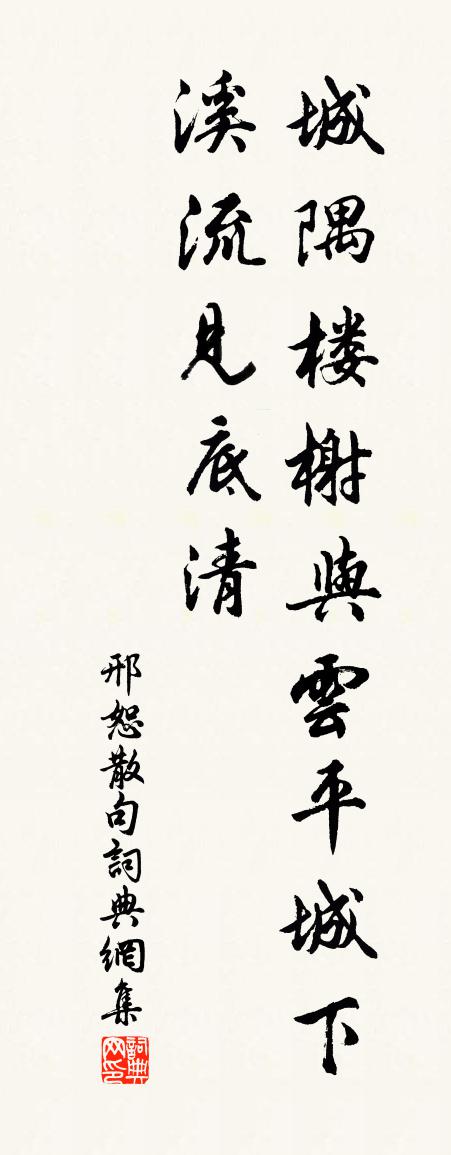 城隅楼榭與雲平城下
溪流見底清
邢恕散句詞典網集
詞典网印